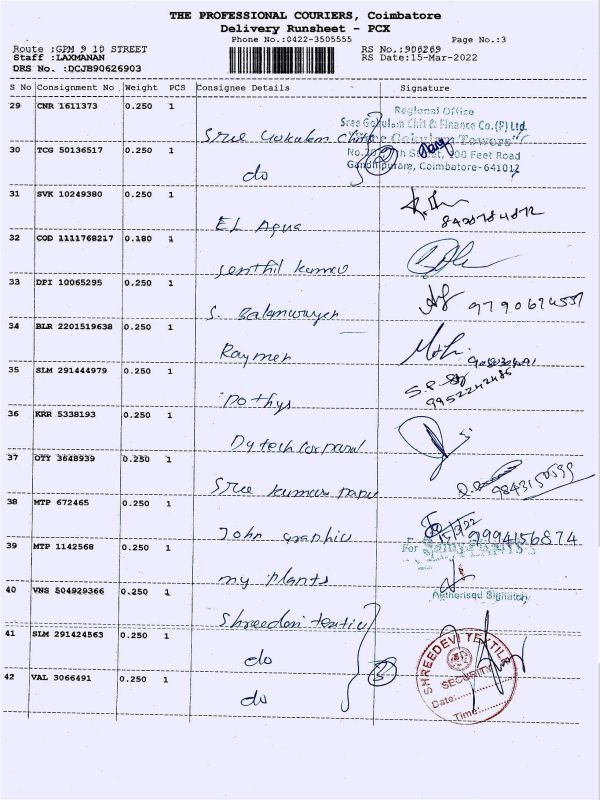 THE PROFESSIONAL COURIERS, Coimbatore
Delivery Runsheet - PCX
Phone No.:0422-3505555
Page No.:3
Route :GPM 9 10 STREET
RS No.:906269
Staff :LAXMANAN
RS Date:15-Mar-2022
DRS No. :DCJB90626903
S No Consignment No Weight PCS Consignee Details Signature
29 CNR 1611373 0.250 1
Regional Office
Sree Gokulam Chit & Finance Co.(P) Ltd.
Sree Gokulam Chits
"Sree Gokulam Towers"
30 TCG 50136517 0.250 1
100 Feet Road
Gandhipuram, Coimbatore-641012
do
2
31 SVK 10249380 0.250 1
EL Aqua
32 COD 1111768217 0.180 1
Senthil Kumar
33 DPI 10065295 0.250 1
S.
34 BLR 2201519638 0.250 1
Raymen
35 SLM 291444979 0.250 1
9952242486
Pothys
36 KRR 5338193 0.250 1
Dytech
37 OTY 3648939 0.250 1
Sree Kumaran
9843150599
38 MTP 672465 0.250 1
15/3/22
John Graphics
9994156874
39 MTP 1142568 0.250 1
For
my plants
40 VNS 504929366 0.250 1
Authorised Signatory
Shreedevi textile
41 SLM 291424563 0.250 1
do
42 VAL 3066491 0.250 1
3
do
SHREEDEVI TEXTILE
SECURITY
Date:
Time: